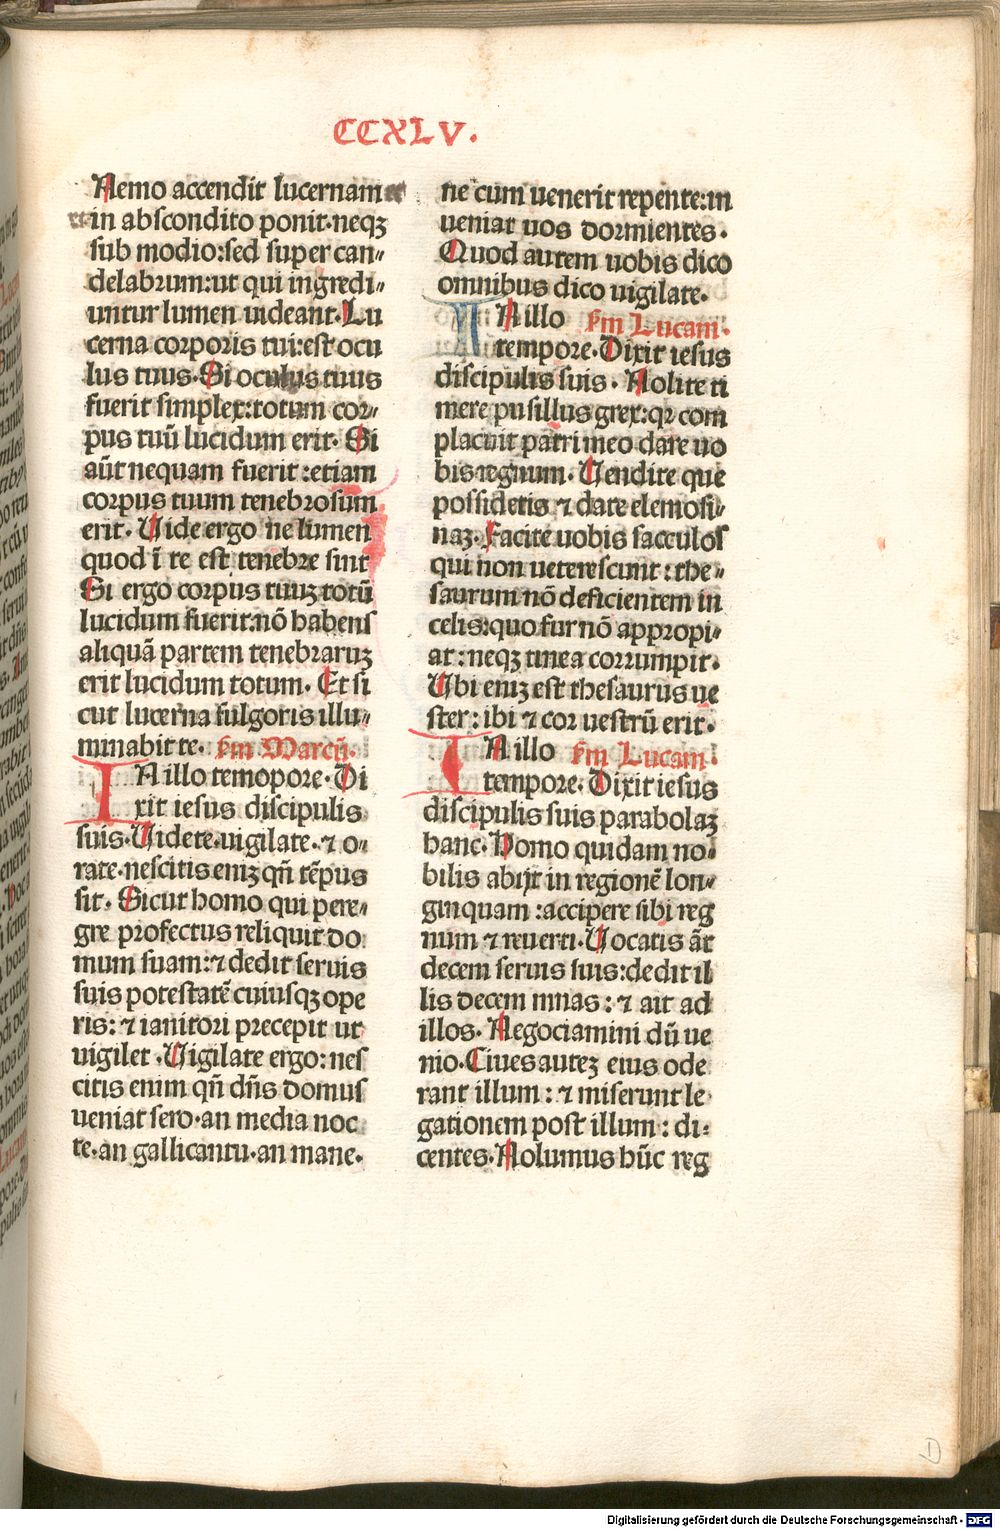 CCXLV.
Nemo accendit lucernam
in abscondito ponit·neqꝫ
sub modio:sed super can⸗
delabrum:ut qui ingredi⸗
untur lumen uideant·Lu
cerna corporis tui:est ocu
lus tuus·Si oculus tuus
fuerit simplex:totum cor⸗
pus tuū lucidum erit· Si
aūt nequam fuerit:etiam
corpus tuum tenebrosum
erit· Uide ergo ne lumen
quod ī te est tenebre sint
Si ergo corpus tuuꝫ totū
lucidum fuerit:nō habens
aliquā partem tenebraruꝫ
erit lucidum totum· Et si
cut lucerna fulgoris illu⸗
minabit te· ẜm Marcū·
IN illo temopore·Di
xit iesus discipulis
suis·Uidete·uigilate·⁊ o⸗
rate·nescitis eniꝫ qn̄ tēpus
sit· Sicut homo qui pere⸗
gre profectus reliquit do
mum suam:⁊ dedit seruis
suis potestatē cuiusqꝫ ope
ris: ⁊ ianitori precepit ut
uigilet ·Uigilate ergo: nes
citis enim qn̄ dn̄s domus
ueniat sero·an media noc
te·an gallicantu·an mane·
ne cum uenerit repente:in
ueniat uos dormientes·
Quod autem uobis dico
omnibus dico uigilate·
IN illo ẜm Lucam·
tempore·Dixit iesus
discipulis suis · Nolite ti
mere pusillus grex:qꝛ com
placuit patri meo dare uo
bis regnum· Uendite que
possidetis ⁊ date elemosi⸗
naꝫ· Facite uobis sacculos
qui non ueterescunt : the⸗
saurum nō deficientem in
celis:quo fur nō appropi⸗
at : neqꝫ tinea corrumpit·
Ubi eniꝫ est thesaurus ue
ster: ibi ⁊ cor uestrū erit·
IN illo ẜm Lucam·
tempore·Dixit iesus
discipulis suis parabolaꝫ
hanc· Homo quidam no⸗
bilis abijt in regionē lon⸗
ginquam :accipere sibi reg
num ⁊ reuerti·Uocatis āt
decem seruis suis:dedit il
lis decem mnas : ⁊ ait ad
illos· Negociamini dū ue
nio·Ciues auteꝫ eius ode
rant illum : ⁊ miserunt le
gationem post illum : di⸗
centes·Nolumus hūc reg
D
Digitalisierung gefördert durch die Deutsche Forschungsgemeinschaft - DFG